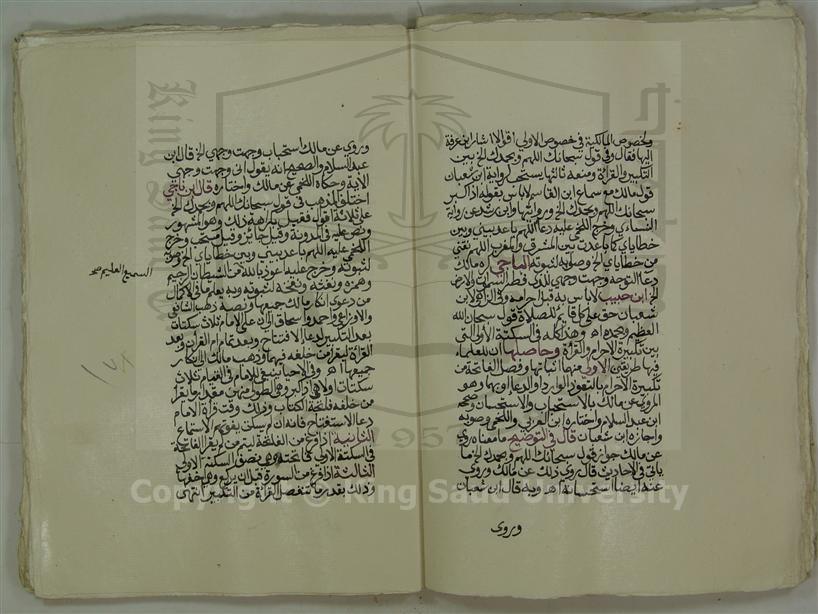 ولخصوص المالكية في خصوص الاولى اقوالا اشار ابن عرفة
اليها فقال وفي قول سبحانك اللهم وبحمدك الخ بين
التكبير والقراءة ومنعه ثالثها يستحب لرواية ابن شعبان
قول مالك مع سماع ابن القاسم لا باس بقوله اذا كبر
سبحانك اللهم وبحمدك الخ وروايتها وابن رشد عن رواية
النساءي وخرج اللخمي عليه دعاء اللهم باعد بيني وبين
خطاياي كما باعدت بين المشرق والمغرب اللهم نقني
من خطاياي الخ وصوبه لثبوته الباجي كره مالك
دعاء التوجه وجهت وجهي للذي فطر السموات والارض
الخ ابن حبيب لا باس به قبل احرامه وفي الزاهي لابن
شعبان حق على كل قايم للصلاة قول سبحان الله
العظيم وبحمده اهـ وهذا كله في السكتة الاولى التي
بين تكبيرة الاحرام والقراءة وحاصلها ان للعلماء
فيها طريقتين الاولى منهما اثباتها وفصل الفاتحة من
تكبيرة الاحرام بالتعوذ الوارد او الدعاء او بهما وهو
المروي عن مالك بالاستحباب والاستحسان وصححه
ابن عبد السلام واختاره ابن العربي واللخمي وصوبه
واجازه ابن شعبان قال في التوضيح ما معناه روي
عن مالك جواز قول سبحانك اللهم وبحمدك الخ ما
ياتي في الاحاديث قال روي ذلك عن مالك وروي
عنه ايضا استحسانه اهـ وبه قال ابن شعبان
وروي
وروي عن مالك استحباب وجهت وجهي الخ قال ابن
عبد السلام والصحيح انه يقول اني وجهت وجهي
الاية وحكاه اللخمي عن مالك واختاره قال ابن ناجي
اختلف المذهب في قول سبحانك اللهم وبحمدك الخ
على ثلاثة اقوال فقيل بكراهة ذلك وهو المشهور
ونص عليه في المدونة وقيل جائز وقيل مستحب وخرج
اللخمي عليه اللهم باعد بيني وبين خطاياي الخ وصوبه
لثبوته وخرج عليه اعوذ بالله من الشيطان الرجيم
السميع العليم صح
وهمزه ونفثه ونفخه لثبوته وبه يعلم ما في الاكمال
من دعوى انكار مالك جميعها ونصه ذهب الشافعي
والاوزاعي واحمد واسحاق الى ان على الامام ثلاث سكتات
بعد التكبير لدعاء الافتتاح وبعد تمام ام القرآن وبعد
القراءة ليقرا من خلفه فيهما وذهب مالك الى انكار
جميعها اهـ وفي الاحياء ينبغي للامام في القيام ثلاث
سكتات اولاهن اذا كبر وهي الطولى منهن مقدار ما يقرا
من خلفه فاتحة الكتاب وذلك وقت قراءة الامام
دعاء الاستفتاح فانه ان لم يسكت يفوتهم الاستماع
الثانية اذا فرغ من الفاتحة ليتم من لم يقرا الفاتحة
في السكتة الاولى فاتحته وهي نصف السكتة الاولى
الثالثة اذا فرغ من السورة قبل ان يركع وهي اخفها
وذلك بقدر ما تنفصل القراءة من التكبير انتهى
١٧٨
Copyright © King Saud University
1957